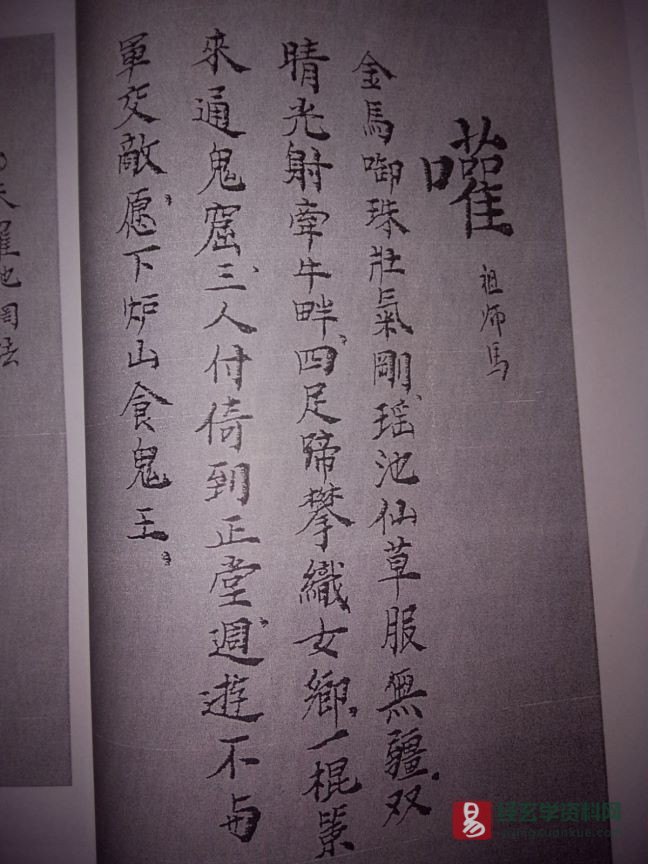 嚾
祖师馬
金馬啣珠壯氣剛、瑶池仙草服無疆、双
晴光射牵牛畔、四足蹄攀織女鄉、一棍策
來通鬼窟、三人付倚到正堂、週遊不与
軍交敵、愿下炉山食鬼王、
天羅地網法
易
玄学资料网